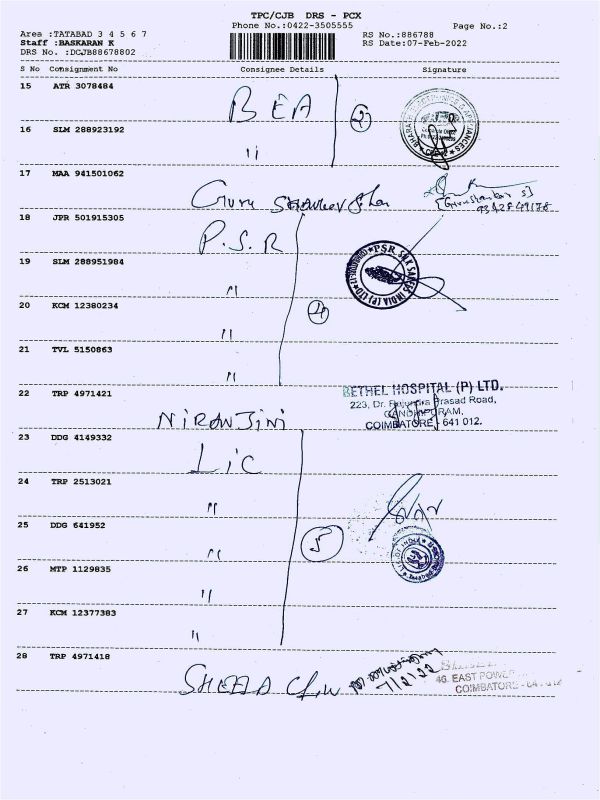 TPC/CJB DRS - PCX
Phone No.:0422-3505555 Page No.:2
Area :TATABAD 3 4 5 6 7 RS No.:886788
Staff :BASKARAN K RS Date:07-Feb-2022
DRS No. :DCJB88678802
S No Consignment No Consignee Details Signature
15 ATR 3078484
BEA 2
16 SLM 288923192
"
17 MAA 941501062
Guru
18 JPR 501915305
P.S.R
PSR SILK SAREES INDIA (P) LTD
19 SLM 288951984
"
20 KCM 12380234 4
"
21 TVL 5150863
"
22 TRP 4971421
BETHEL HOSPITAL (P) LTD.
223, Dr. Rajendra Prasad Road,
GANDHIPURAM,
COIMBATORE - 641 012.
NIRANJINI
23 DDG 4149332
LIC
24 TRP 2513021
"
25 DDG 641952 5
"
26 MTP 1129835
"
27 KCM 12377383
"
28 TRP 4971418
SHEELA
7/2/22
46, EAST POWER
COIMBATORE